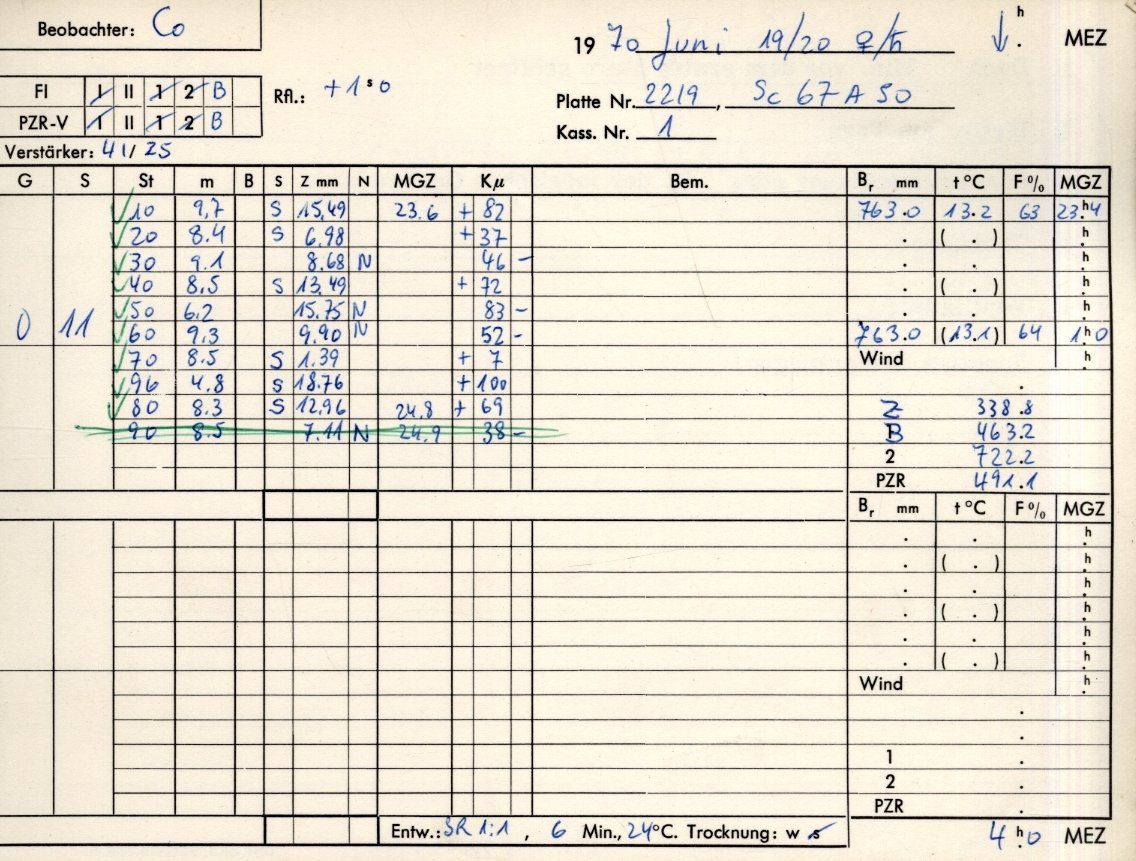 Beobachter: Co
19 70 Juni 19/20 ♀/♄ h . MEZ
FI I II 1 2 B
PZR-V I II 1 2 B
Rfl.: +1 s 0
Platte Nr. 2219, Sc 67 A 50
Kass. Nr. 1
Verstärker: 41/25
G S St m B S Z mm N MGZ Kμ Bem. Br mm t°C F% MGZ
10 9,7 S 15,49 23.6 + 82 763.0 13.2 63 23.h4
20 8.4 S 6.98 + 37 . ( . ) h
30 9.1 8.68 N 46 - . . h
40 8,5 S 13,49 + 72 . ( . ) h
50 6.2 15.75 N 83 - . . h
0 11 60 9,3 9.90 N 52 - 763.0 (13.1) 64 1h0
70 8.5 S 1.39 + 7 Wind h
96 4.8 S 18.76 + 100 .
80 8.3 S 12,96 24.8 + 69 Z 338.8
90 8.5 7.11 N 24.9 38 - B 463.2
2 722.2
PZR 491.1
Br mm t°C F% MGZ
. . h
. ( . ) h
. . h
. ( . ) h
. . h
. ( . ) h
Wind h
.
.
1 .
2 .
PZR .
Entw.: SR 1:1, 6 Min., 24°C. Trocknung: w s
4 h 0 MEZ